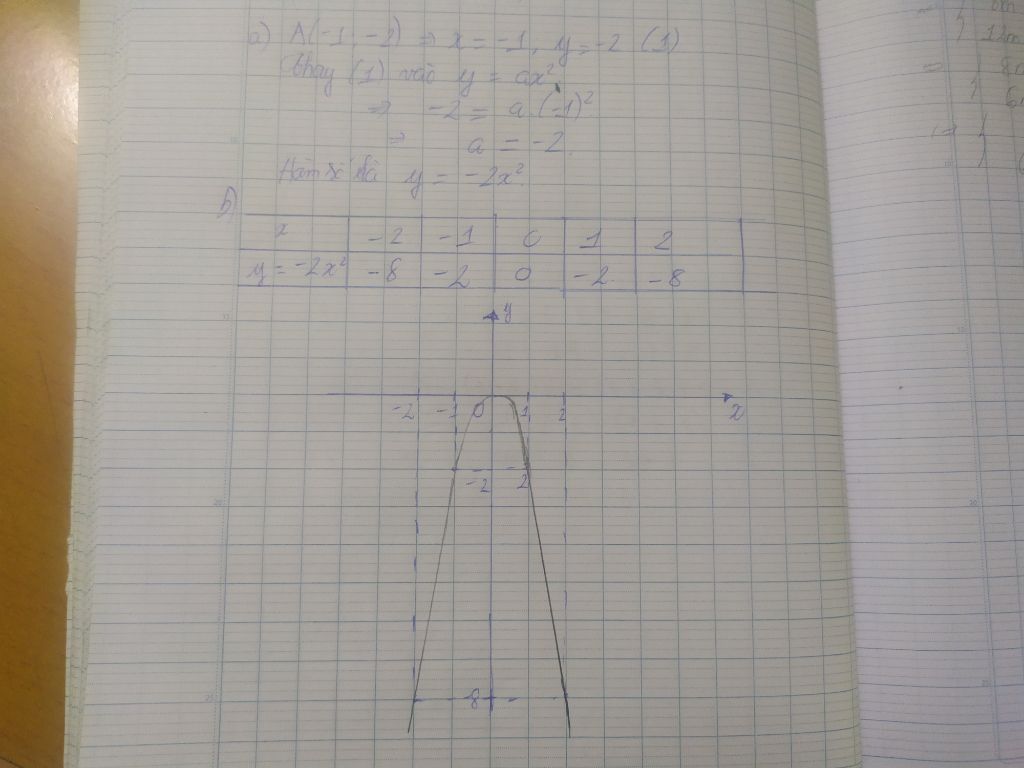 a) A(-1; -2) ⇒ x = -1, y = -2 (1)
Thay (1) vào y = ax²
⇒ -2 = a.(-1)²
⇒ a = -2.
Hàm số là y = -2x².
b)
x -2 -1 0 1 2
y = -2x² -8 -2 0 -2 -8
y
-2 -1 0 1 2 x
-2 -2
-8